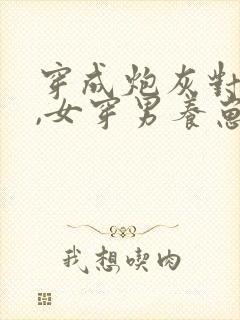 穿成炮灰對
,女穿男養崽
我想喫肉